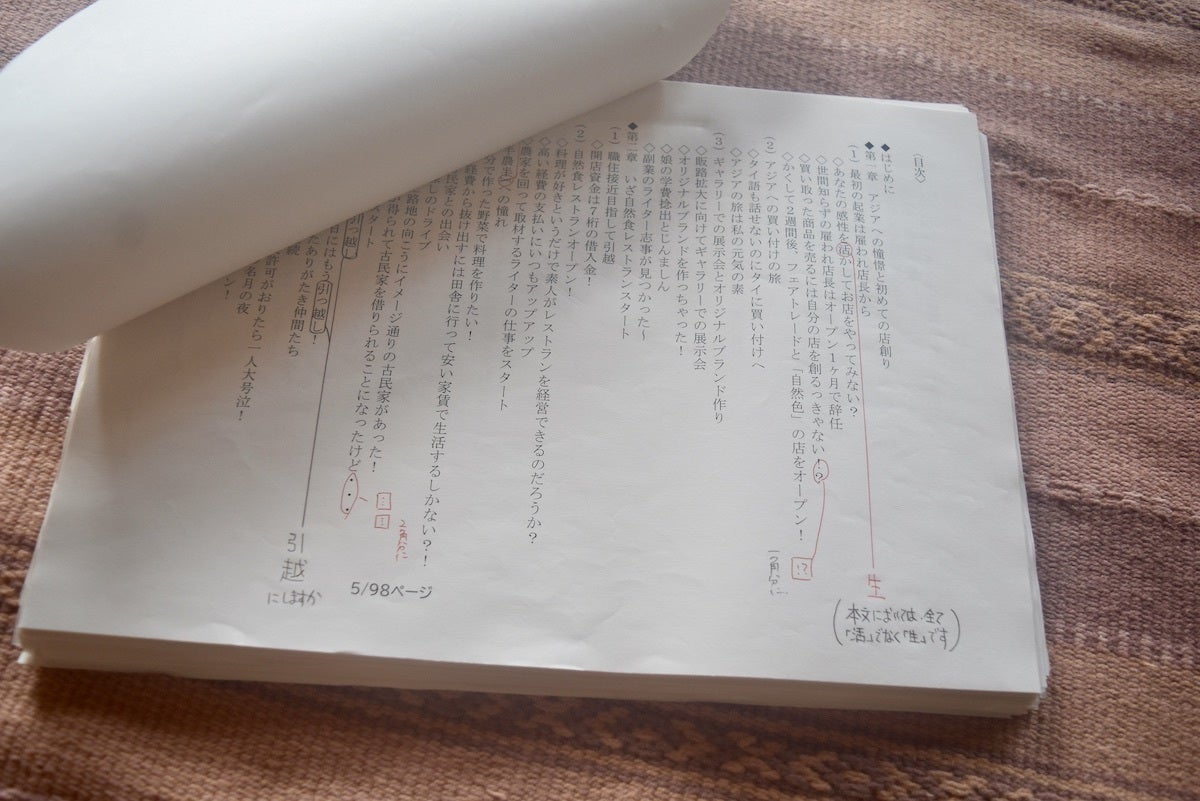 〈目次〉
◆はじめに
◆第一章　アジアへの憧憬と初めての店創り
（1）最初の起業は雇われ店長から
◇あなたの感性を活かしてお店をやってみない？
◇世間知らずの雇われ店長はオープン１ヶ月で辞任
◇買い取った商品を売るには自分の店を創るっきゃない！？
◇かくして２週間後、フェアトレードと「自然色」の店をオープン！
（2）アジアへの買い付けの旅
◇タイ語も話せないのにタイに買い付けへ
◇アジアの旅は私の元気の素
（3）ギャラリーでの展示会とオリジナルブランド作り
◇販路拡大に向けてギャラリーでの展示会
◇オリジナルブランドを作っちゃった！
◇娘の学費捻出とじんましん
◇副業のライター志事が見つかった～
◆第二章　いざ自然食レストランスタート
（1）職住接近目指して引越
◇開店資金は７桁の借入金！
（2）自然食レストランオープン！
◇料理が好きというだけで素人がレストランを経営できるのだろうか？
◇高い経費の支払いにいつもアップアップ
◇農家を回って取材するライターの仕事をスタート
半農生への憧れ
分で作った野菜で料理を作りたい！
経費から抜け出すには田舎に行って安い家賃で生活するしかない？！
民家との出会い
しのドライブ
路地の向こうにイメージ通りの古民家があった！
が得られて古民家を借りられることになったけど・・・
タート
引っ越し
日にはもう引っ越し！
たありがたき仲間たち
続
許可がおりたら一人大号泣！
名月の夜
ン！
5/98ページ
生
（本文においては、全て
「活」でなく「生」です）
!?
一角分に
2角分に
引越
にしますか